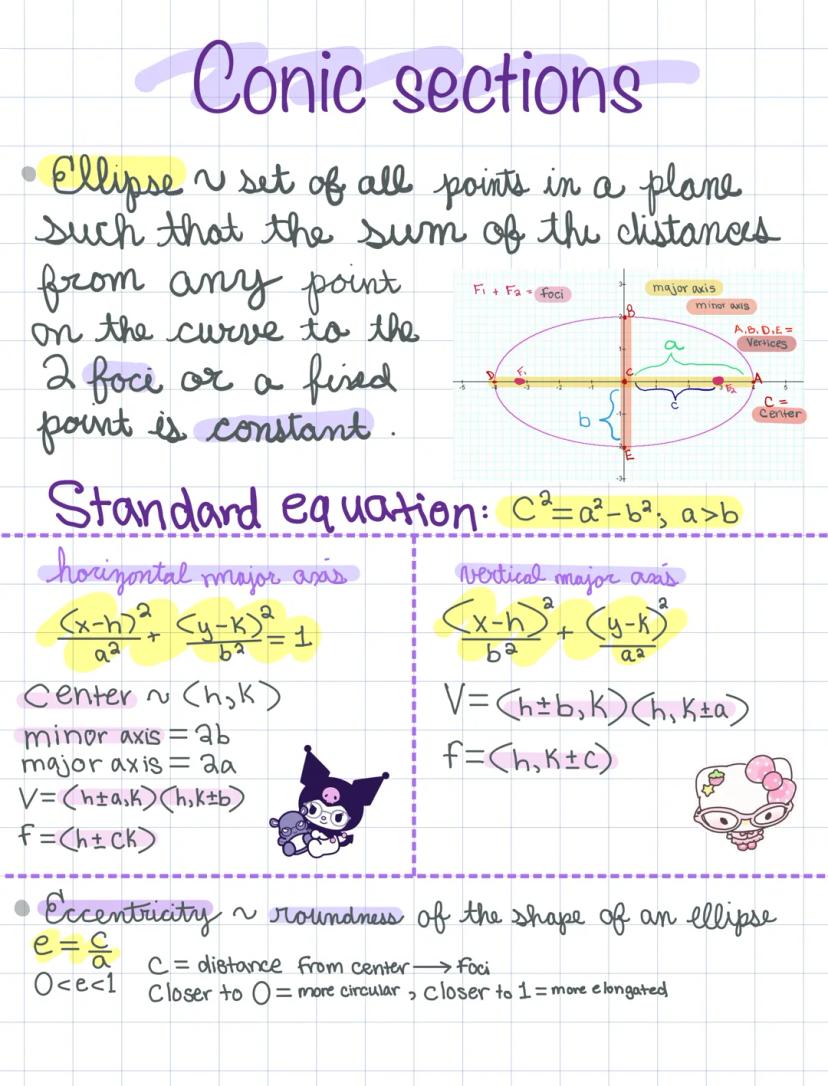 Conic sections
Ellipse ~ set of all points in a plane
such that the sum of the distances
from any point
on the curve to the
2 foci or a fixed
point is constant.
F₁ + F₂ = foci
major axis
minor axis
A, B, D, E =
Vertices
C =
Center
B
a
D
F₁
C
F₂
A
c
b
E
3
2
1
-1
-2
-3
5
Standard equation: C²=a²-b²; a>b
horizontal major axis
(x-h)²/a² + (y-k)²/b² = 1
Center ~ (h,k)
minor axis = 2b
major axis = 2a
V=(h±a,k)(h,k±b)
f=(h±ck)
vertical major axis
(x-h)²/b² + (y-k)²/a²
V=(h±b,k)(h,k±a)
f=(h,k±c)
Eccentricity ~ roundness of the shape of an ellipse
e = c/a
0<e<1
C = distance from center → foci
Closer to 0 = more circular, closer to 1 = more elongated